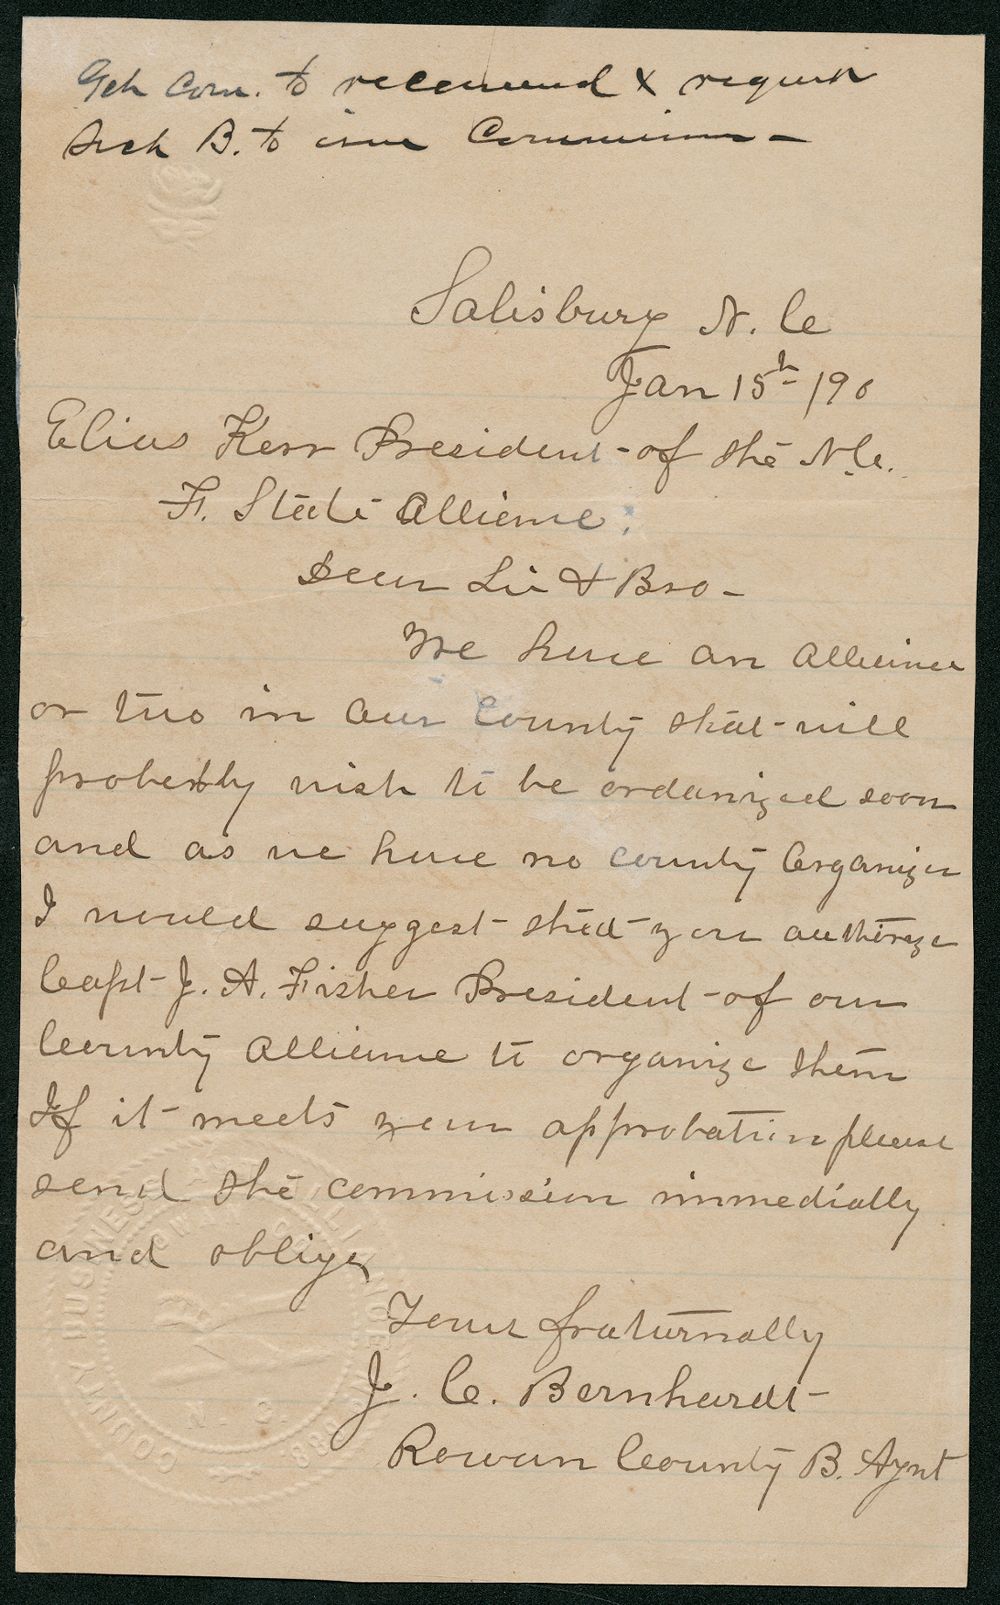 Get Com. to recommend & request
Sec B. to issue Commission -
Salisbury N. C
Jan 15th 190
Elias Kerr President of the N.C.
F. State Alliance:
Dear Sir & Bro -
We have an Alliance
or two in our County that will
probebly wish to be ordanized soon
and as we have no county Organizer
I would suggest that you autherize
Capt J. A. Fisher President of our
County Alliance to organize them
If it meets your approbation please
send the commission immedially
and oblige,
Your fraturnally
J. C. Bernhardt
Rowan County B. Agnt
COUNTY BUSINESS
N. C.
188